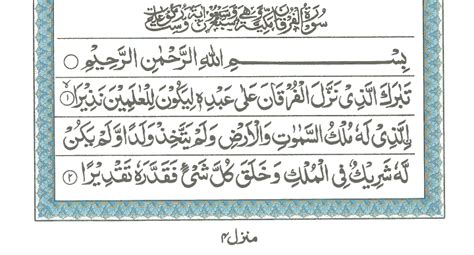 سُوْرَةُ الْفُرْقَانِ مَكِّيَّةٌ وَّهِيَ سَبْعٌ وَّسَبْعُوْنَ اٰيَةً وَّسِتُّ رُكُوْعَاتٍ
بِسْمِ اللهِ الرَّحْمٰنِ الرَّحِيْمِ ○
تَبٰرَكَ الَّذِىْ نَزَّلَ الْفُرْقَانَ عَلٰى عَبْدِهٖ لِيَكُوْنَ لِلْعٰلَمِيْنَ نَذِيْرًا ۙ ۱
اۨلَّذِىْ لَهٗ مُلْكُ السَّمٰوٰتِ وَالْاَرْضِ وَلَمْ يَتَّخِذْ وَلَدًا وَّلَمْ يَكُنْ
لَّهٗ شَرِيْكٌ فِى الْمُلْكِ وَخَلَقَ كُلَّ شَىْءٍ فَقَدَّرَهٗ تَقْدِيْرًا ۲
منزل ۴